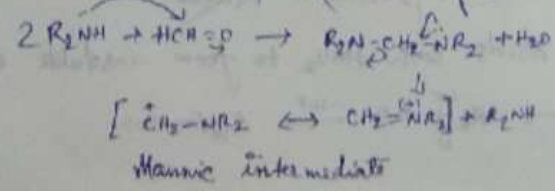 2 R₂NH + HCH=O → R₂N-CH₂-NR₂ + H₂O
[ ⁺CH₂-NR₂ ↔ CH₂=N⁽⁺⁾R₂ ] + R₂NH
Mannic intermediate